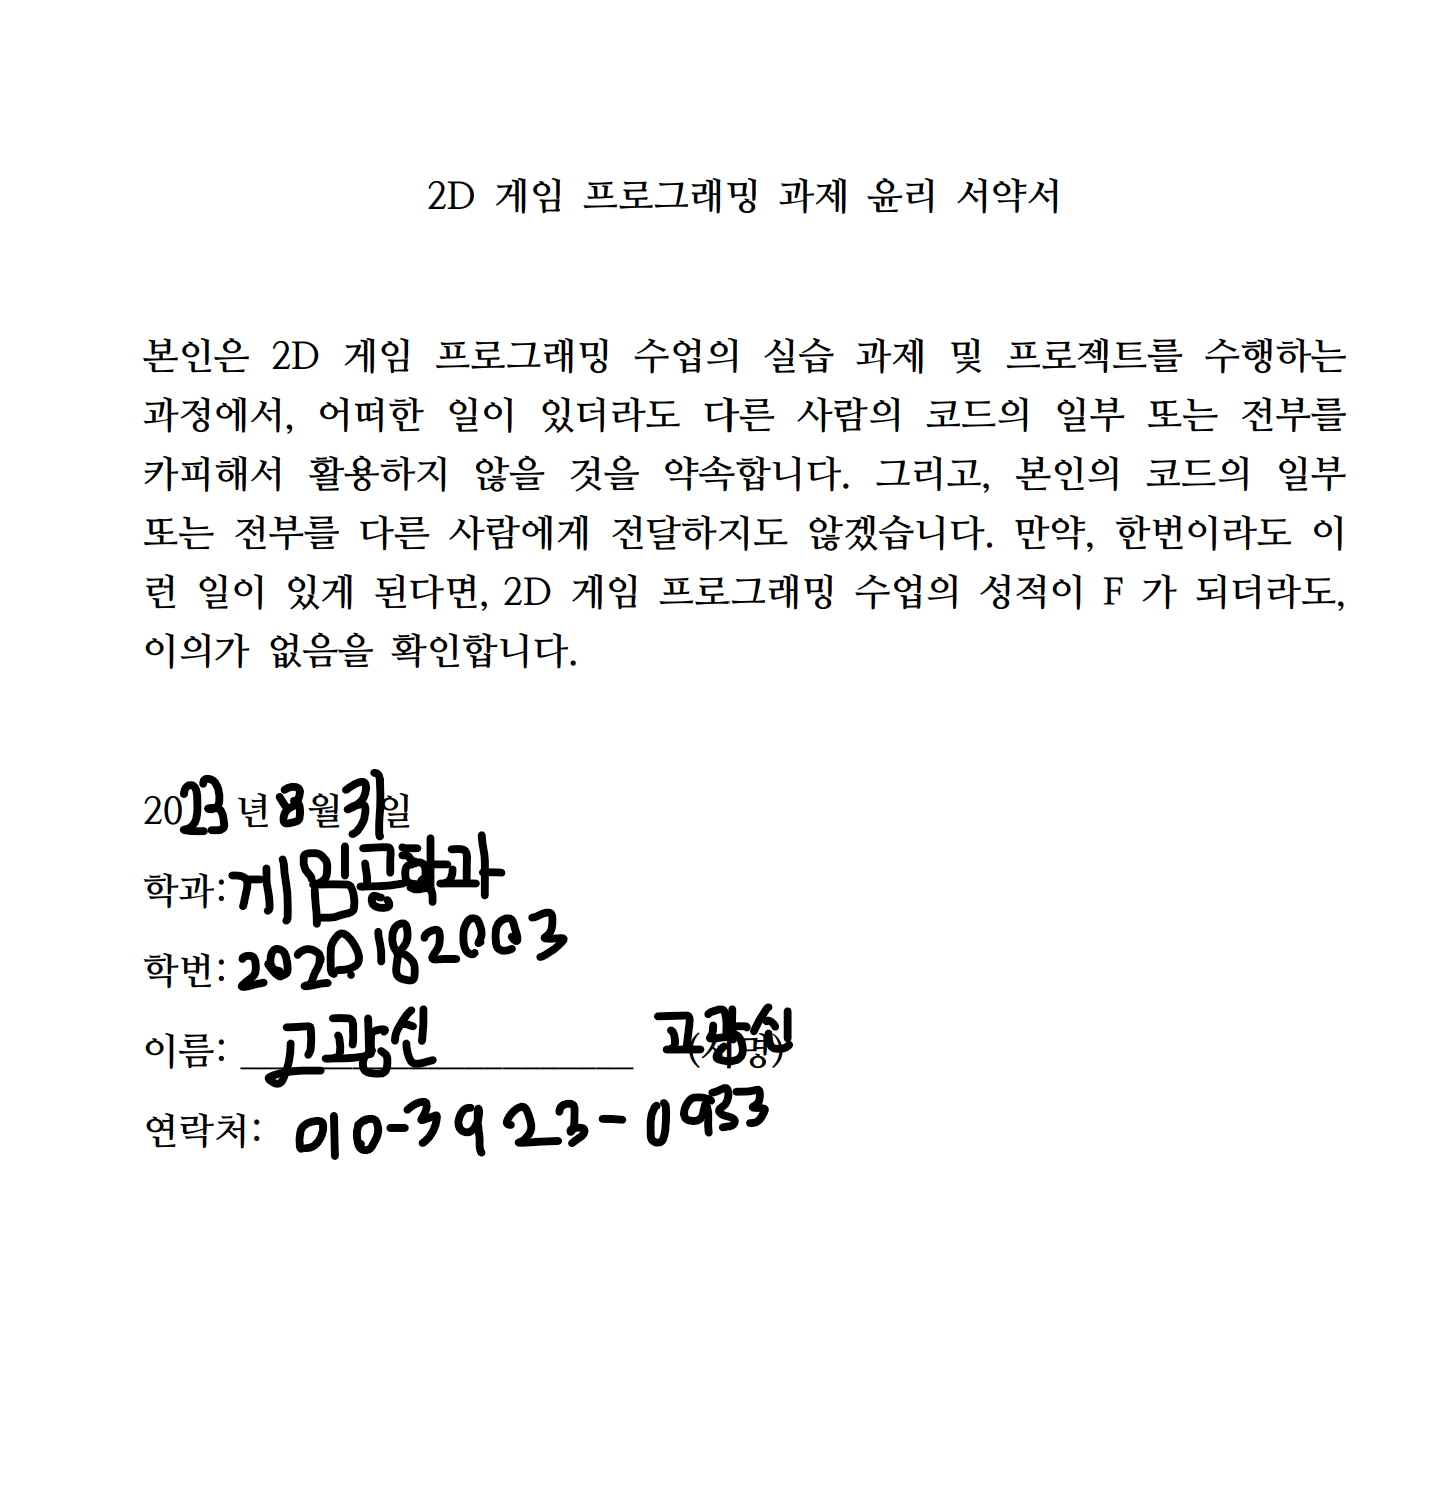 2D 게임 프로그래밍 과제 윤리 서약서
본인은 2D 게임 프로그래밍 수업의 실습 과제 및 프로젝트를 수행하는
과정에서, 어떠한 일이 있더라도 다른 사람의 코드의 일부 또는 전부를
카피해서 활용하지 않을 것을 약속합니다. 그리고, 본인의 코드의 일부
또는 전부를 다른 사람에게 전달하지도 않겠습니다. 만약, 한번이라도 이
런 일이 있게 된다면, 2D 게임 프로그래밍 수업의 성적이 F 가 되더라도,
이의가 없음을 확인합니다.
2023 년 8월 31일
학과: 게임공학과
학번: 2020182003
이름: 고광신 고광신 (서명)
연락처: 010-3923-0933